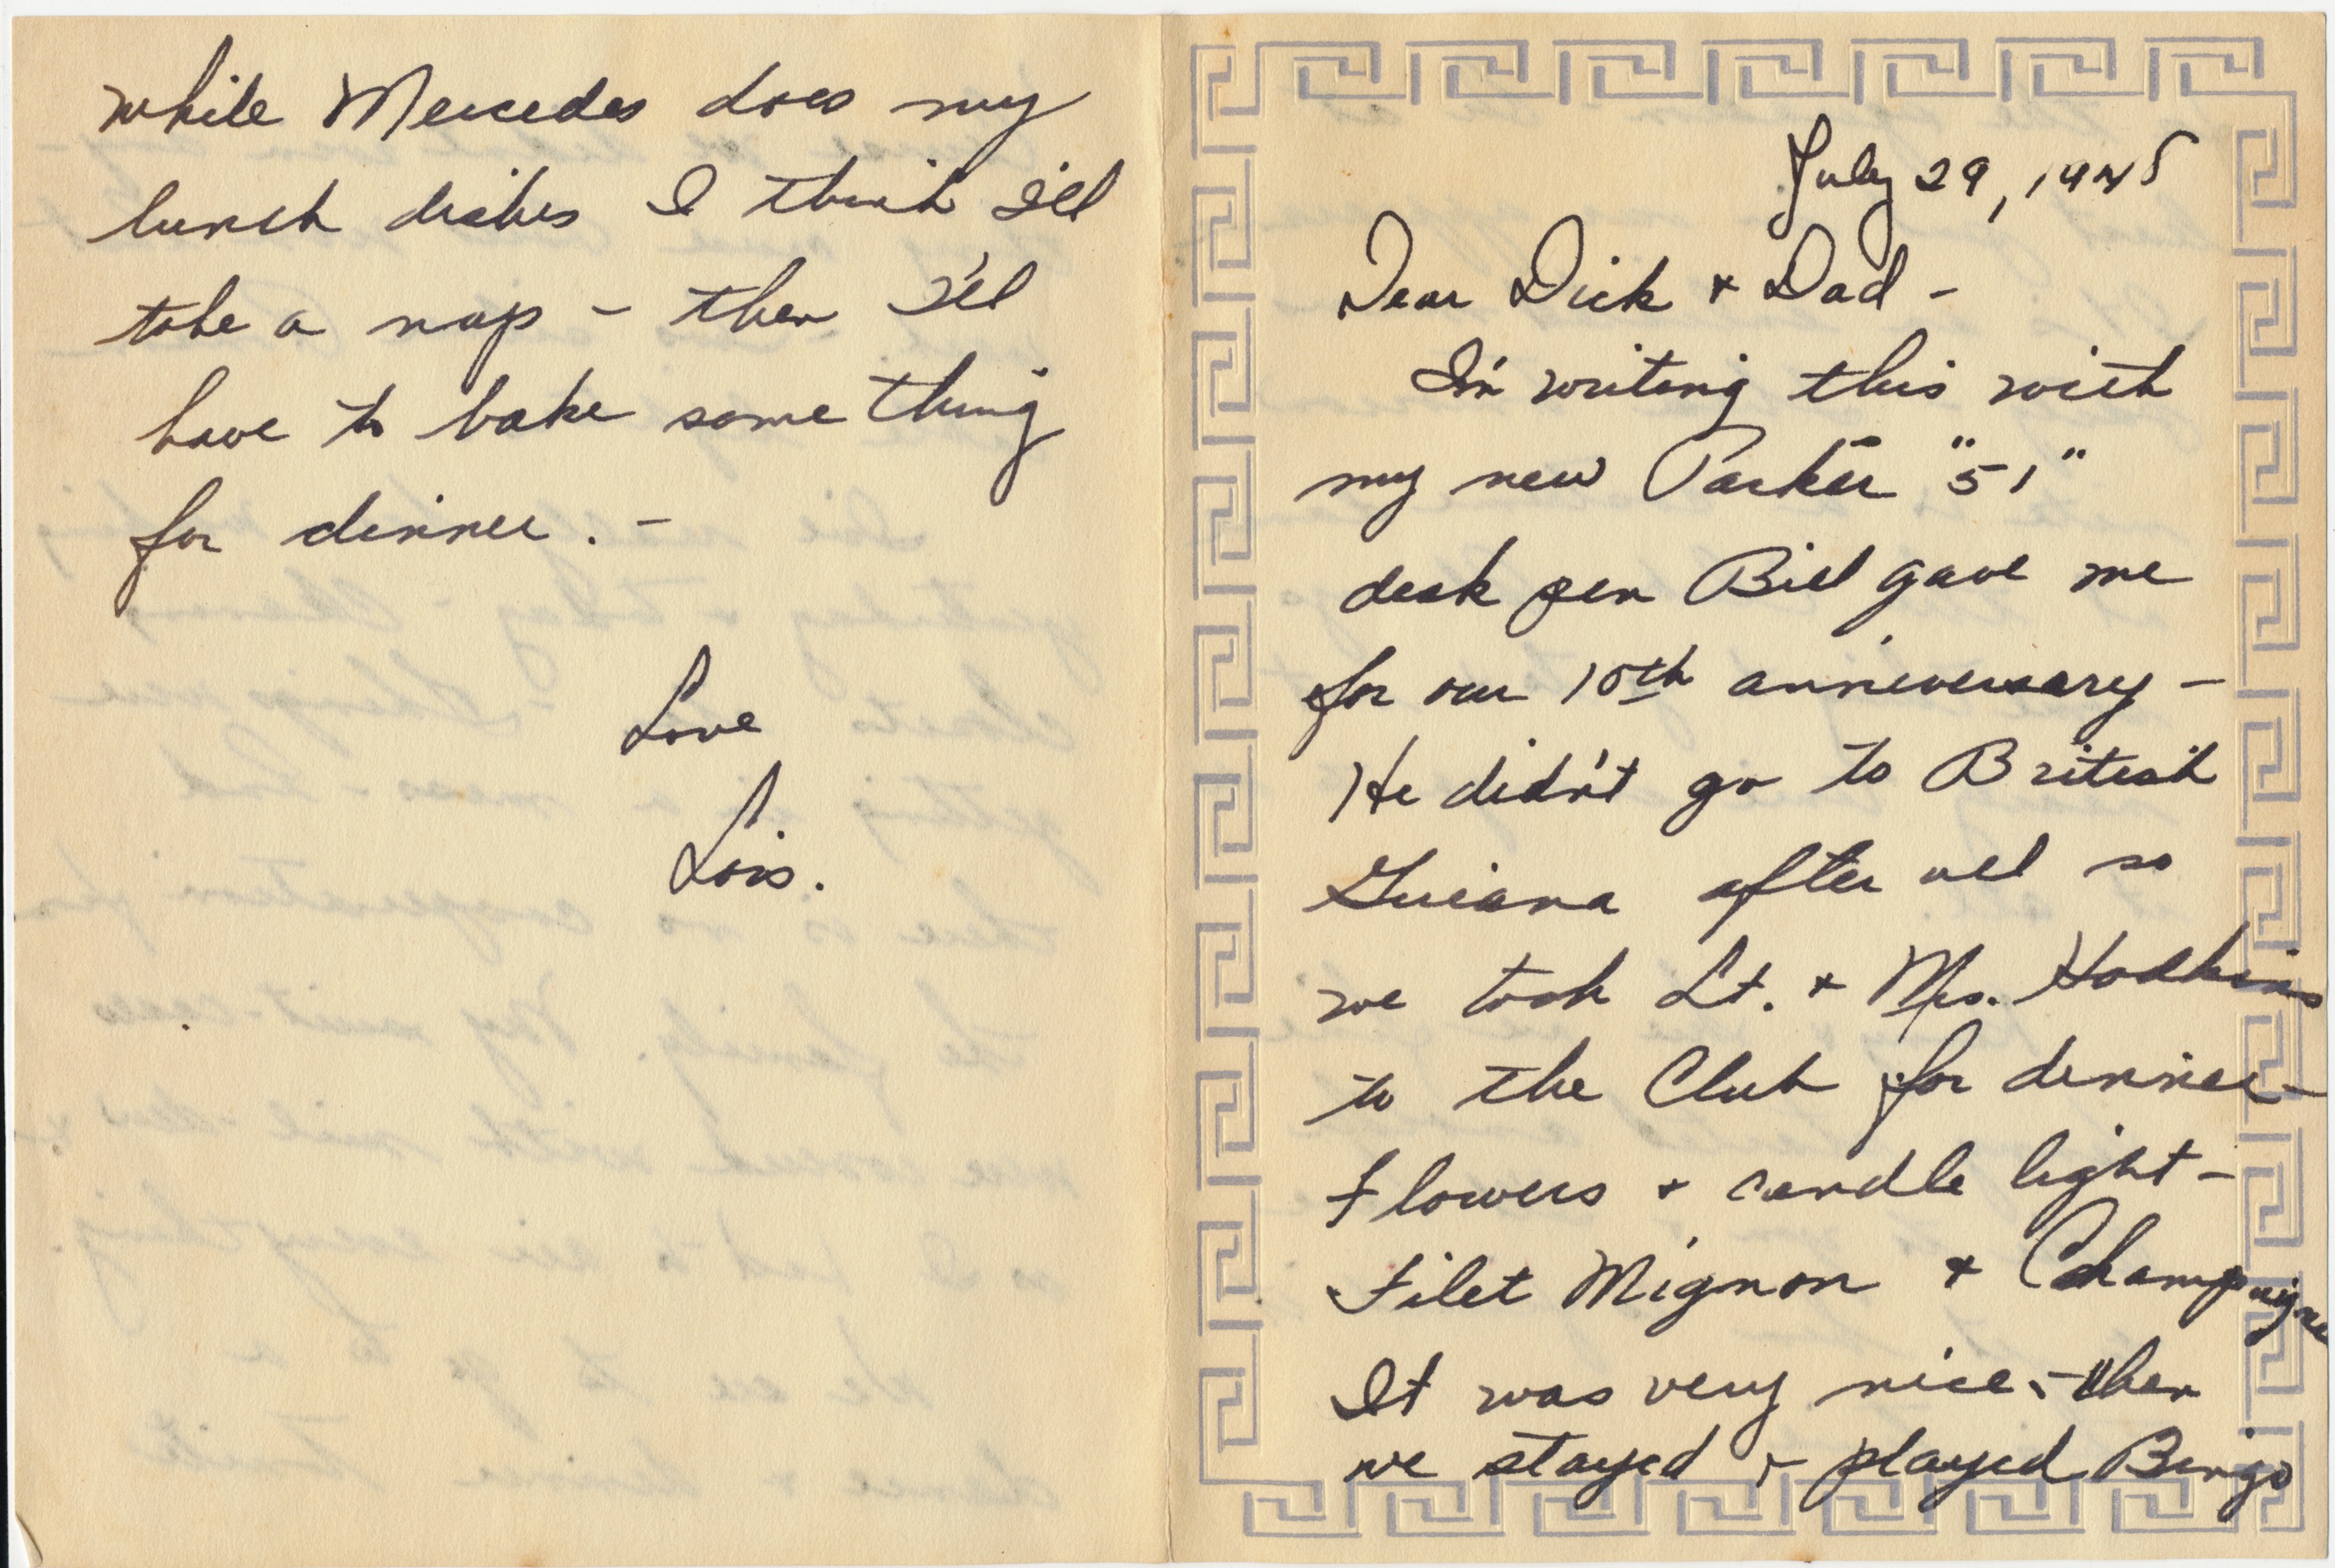 July 29, 1945
Dear Dick + Dad -
I'm writing this with
my new Parker "51"
desk pen Bill gave me
for our 10th anniversary -
He didn't go to British
Guiana after all so
we took Lt. + Mrs. Hodkins
to the Club for dinner -
Flowers + candle light -
Filet Mignon + Champaigne
It was very nice - then
we stayed + played Bingo
while Mercedes does my
lunch dishes I think I'll
take a nap - then I'll
have to bake some thing
for dinner. -
Love
Lois.